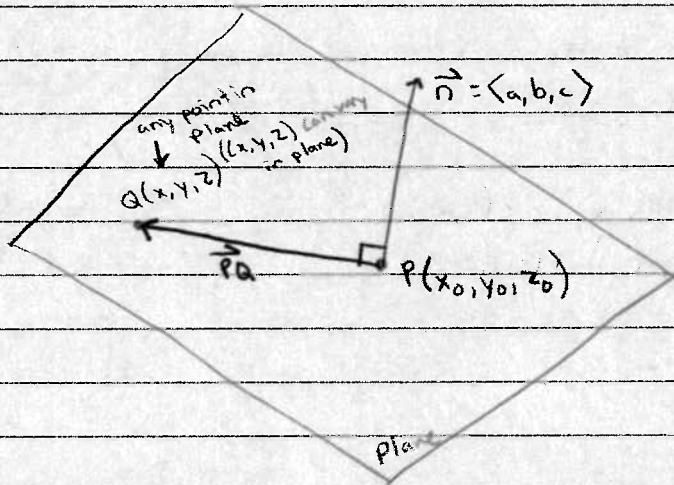 any point in
plane
Q(x,y,z) ((x,y,z) can vary
in plane)
n⃗ = ⟨a,b,c⟩
PQ⃗
P(x₀,y₀,z₀)
plane